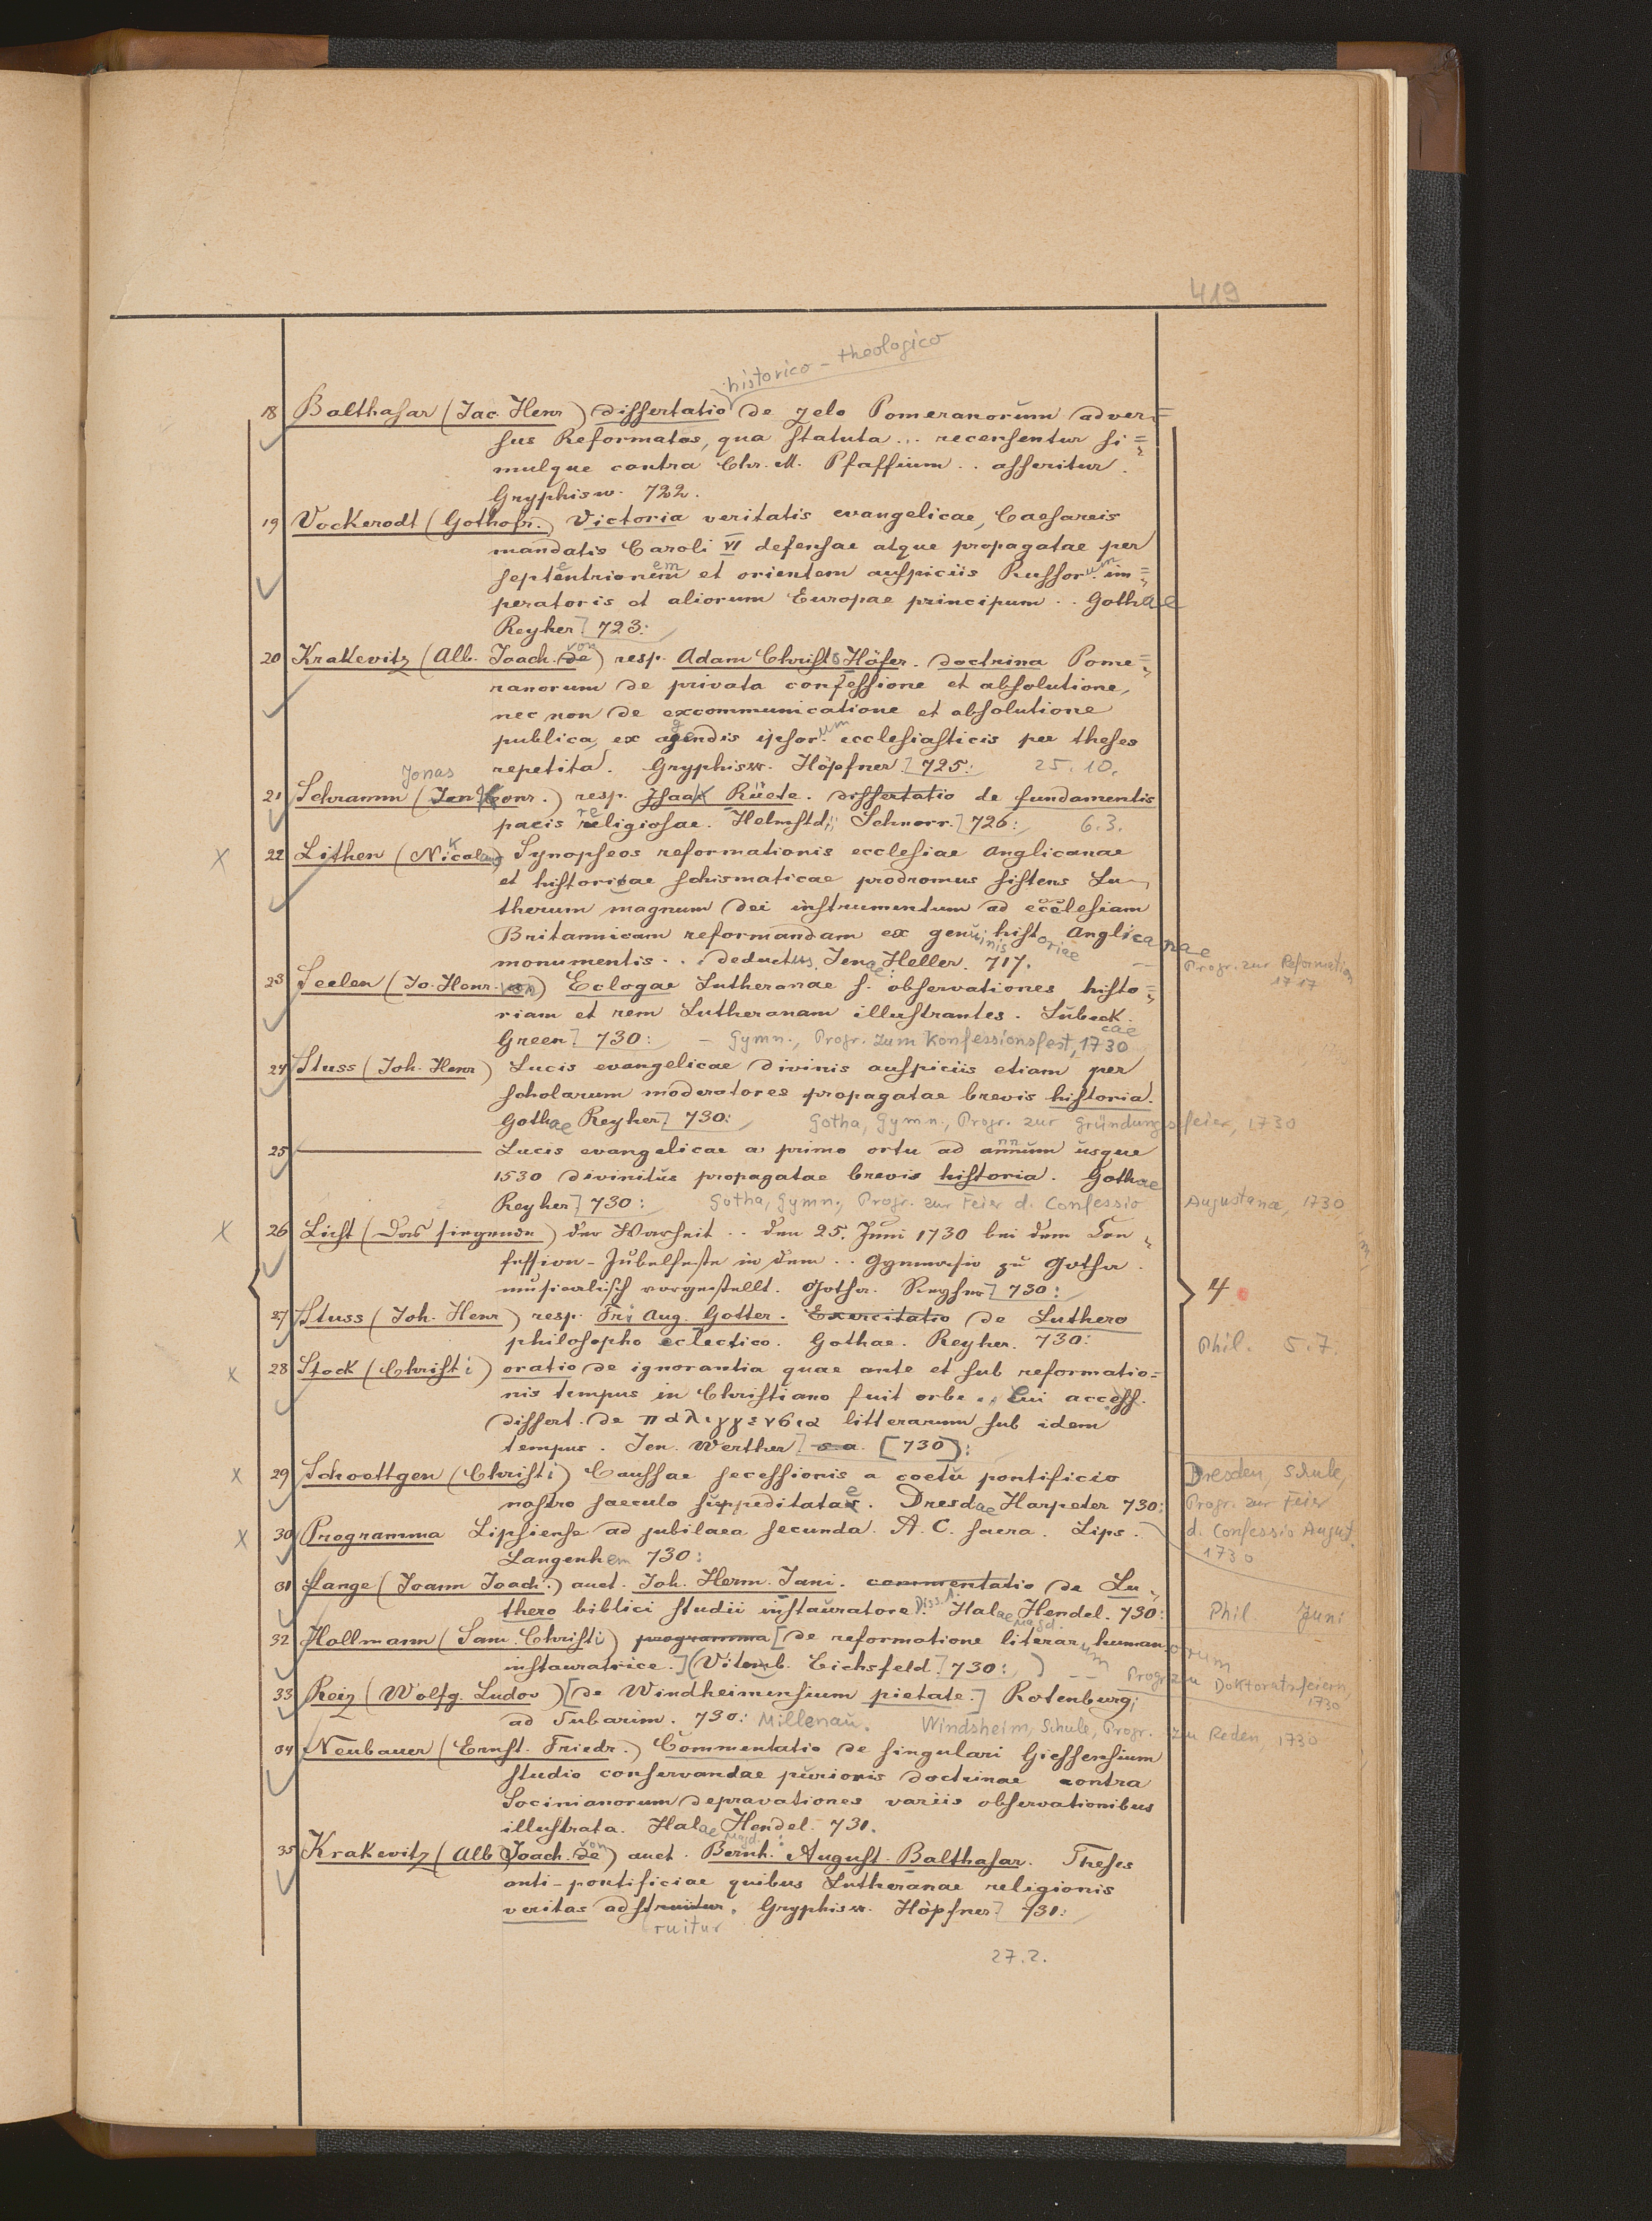 419
historico-theologico
18 Balthasar (Jac. Henr) dissertatio de zelo Pomeranorum adver=
sus Reformatos, qua statuta ... recensentur si=
mulque contra Chr. M. Pfaffium .. asseritur.
Gryphisw. 722.
19 Vockerodt (Gothofr.) Victoria veritatis evangelicae, Caesareis
mandatis Caroli VI defensae atque propagatae per
septentrionem et orientem auspiciis Russorum im=
peratoris et aliorum Europae principum .. Gothae
Reyher] 723:
20 Krakevitz (Alb. Joach. de von) resp. Adam Christo Höfer. Doctrina Pome=
ranorum de privata confessione et absolutione,
nec non de excommunicatione et absolutione
publica, ex agendis ipsorum ecclesiasticis per theses
repetita. Gryphisw. Höpfner] 725: 25.10.
Jonas
21 Schramm (Jon. Conr.) resp. Isaak Rüete. dissertatio de fundamentis
pacis religiosae. Helmstd; Schnorr.] 726: 6.3.
x 22 Lithen (Nikolaus) Synopseos reformationis ecclesiae Anglicanae
et historicae schismaticae prodromus sistens Lu=
therum magnum dei instrumentum ad ecclesiam
Britannicam reformandam ex genuinis historiae Anglicanae
monumentis .. deductus. Jenae: Heller. 717. — Progr. zur Reformation
1717
23 Seelen (Jo. Henr. von) Eclogae Lutheranae s. observationes histo=
riam et rem Lutheranam illustrantes. Lübeck.
cae
Green] 730: – Gymn., Progr. zum Konfessionsfest, 1730
24 Stuss (Joh. Henr) Lucis evangelicae divinis auspiciis etiam per
scholarum moderatores propagatae brevis historia.
Gothae Reyher] 730: Gotha, Gymn., Progr. zur Gründungsfeier, 1730
25 ——— Lucis evangelicae a primo ortu ad annum usque
1530 divinitus propagatae brevis historia. Gothae
Reyher] 730: Gotha, Gymn., Progr. zur Feier d. Confessio Augustana, 1730
x 26 Licht (Das siegende) der Warheit .. den 25. Juni 1730 bei dem Con=
fession-Jubelfeste in dem .. Gymnasio zu Gotha.
musicalisch vorgestellt. Gotha. Reyher] 730: 4
27 Stuss (Joh. Henr) resp. Fri Aug. Gotter. Exercitatio de Luthero
philosopho eclectico. Gothae. Reyher. 730: Phil. 5.7.
x 28 Stock (Christi) oratio de ignorantia quae ante et sub reformatio=
nis tempus in Christiano fuit orbe .. Cui access.
dissert. de παλιγγενεσια litterarum sub idem
tempus. Jen. Werther] s.a. [730]:
x 29 Schoettgen (Christi) Caussae secessionis a coetu pontificio Dresden, Schule,
nostro saeculo suppeditatae. Dresdae Harpeter 730: Progr. zur Feier
x 30 Programma Lipsiense ad jubilaea secunda. A. C. sacra. Lips. d. Confessio August.
Langenhem 730: 1730
31 Lange (Joann Joach.) auct. Joh. Herm. Jani. commentatio de Lu=
thero biblici studii instauratore. Diss. 1. Halae Magd. Hendel. 730: Phil. Juni
32 Hollmann (Sam. Christi) programma [de reformatione literarum humanorum
instauratrice.] (Vitemb. Eichsfeld] 730:) — Progr. zu Doktoratsfeiern,
1730
33 Reiz (Wolfg. Ludov) [de Windheimensium pietate.] Rotenburg;
ad Tubarim. 730: Millenau. Windsheim, Schule, Progr. zu Reden, 1730
34 Neubauer (Ernst. Friedr.) Commentatio de singulari Giessensium
studio conservandae purioris doctrinae contra
Socinianorum depravationes variis observationibus
illustrata. Halae Magd. Hendel. 731.
35 Krakevitz (Alb Joach. de von) auct. Bernh. August. Balthasar. Theses
anti-pontificiae quibus Lutheranae religionis
veritas adstruitur. Gryphisw. Höpfner] 731:
ruitur
27.2.